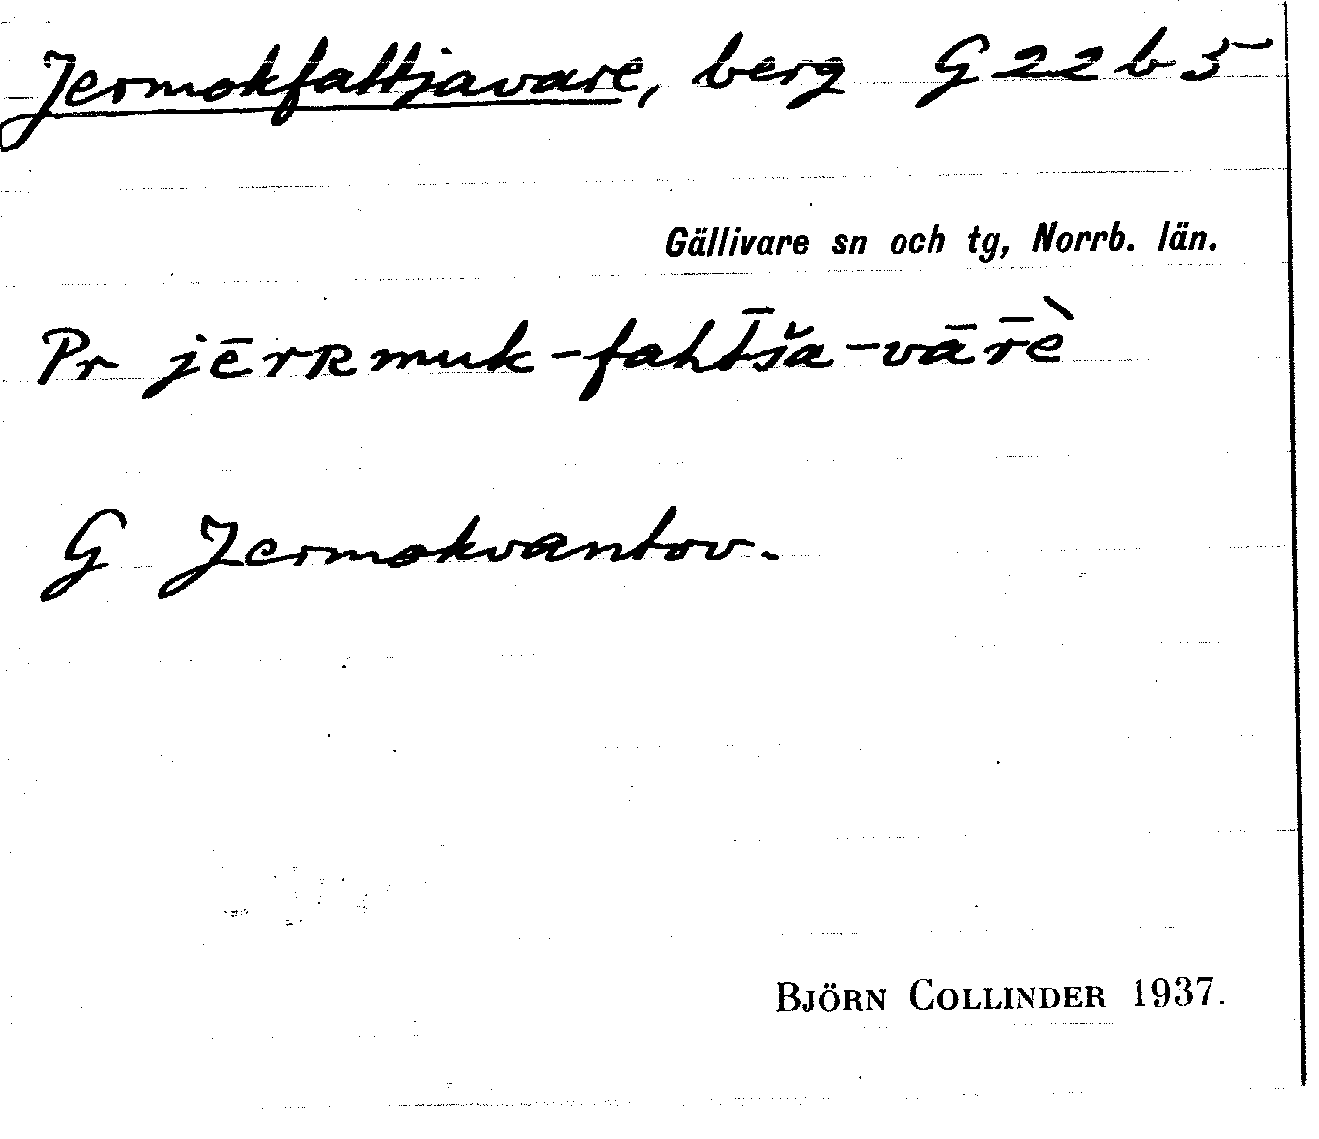 Jermokfattjavare, berg G 22 b 5
Gällivare sn och tg, Norrb. län.
Pr jērʀmuk-faht̄ša-vār̄è
G Jermokvantov.
BJÖRN COLLINDER 1937.